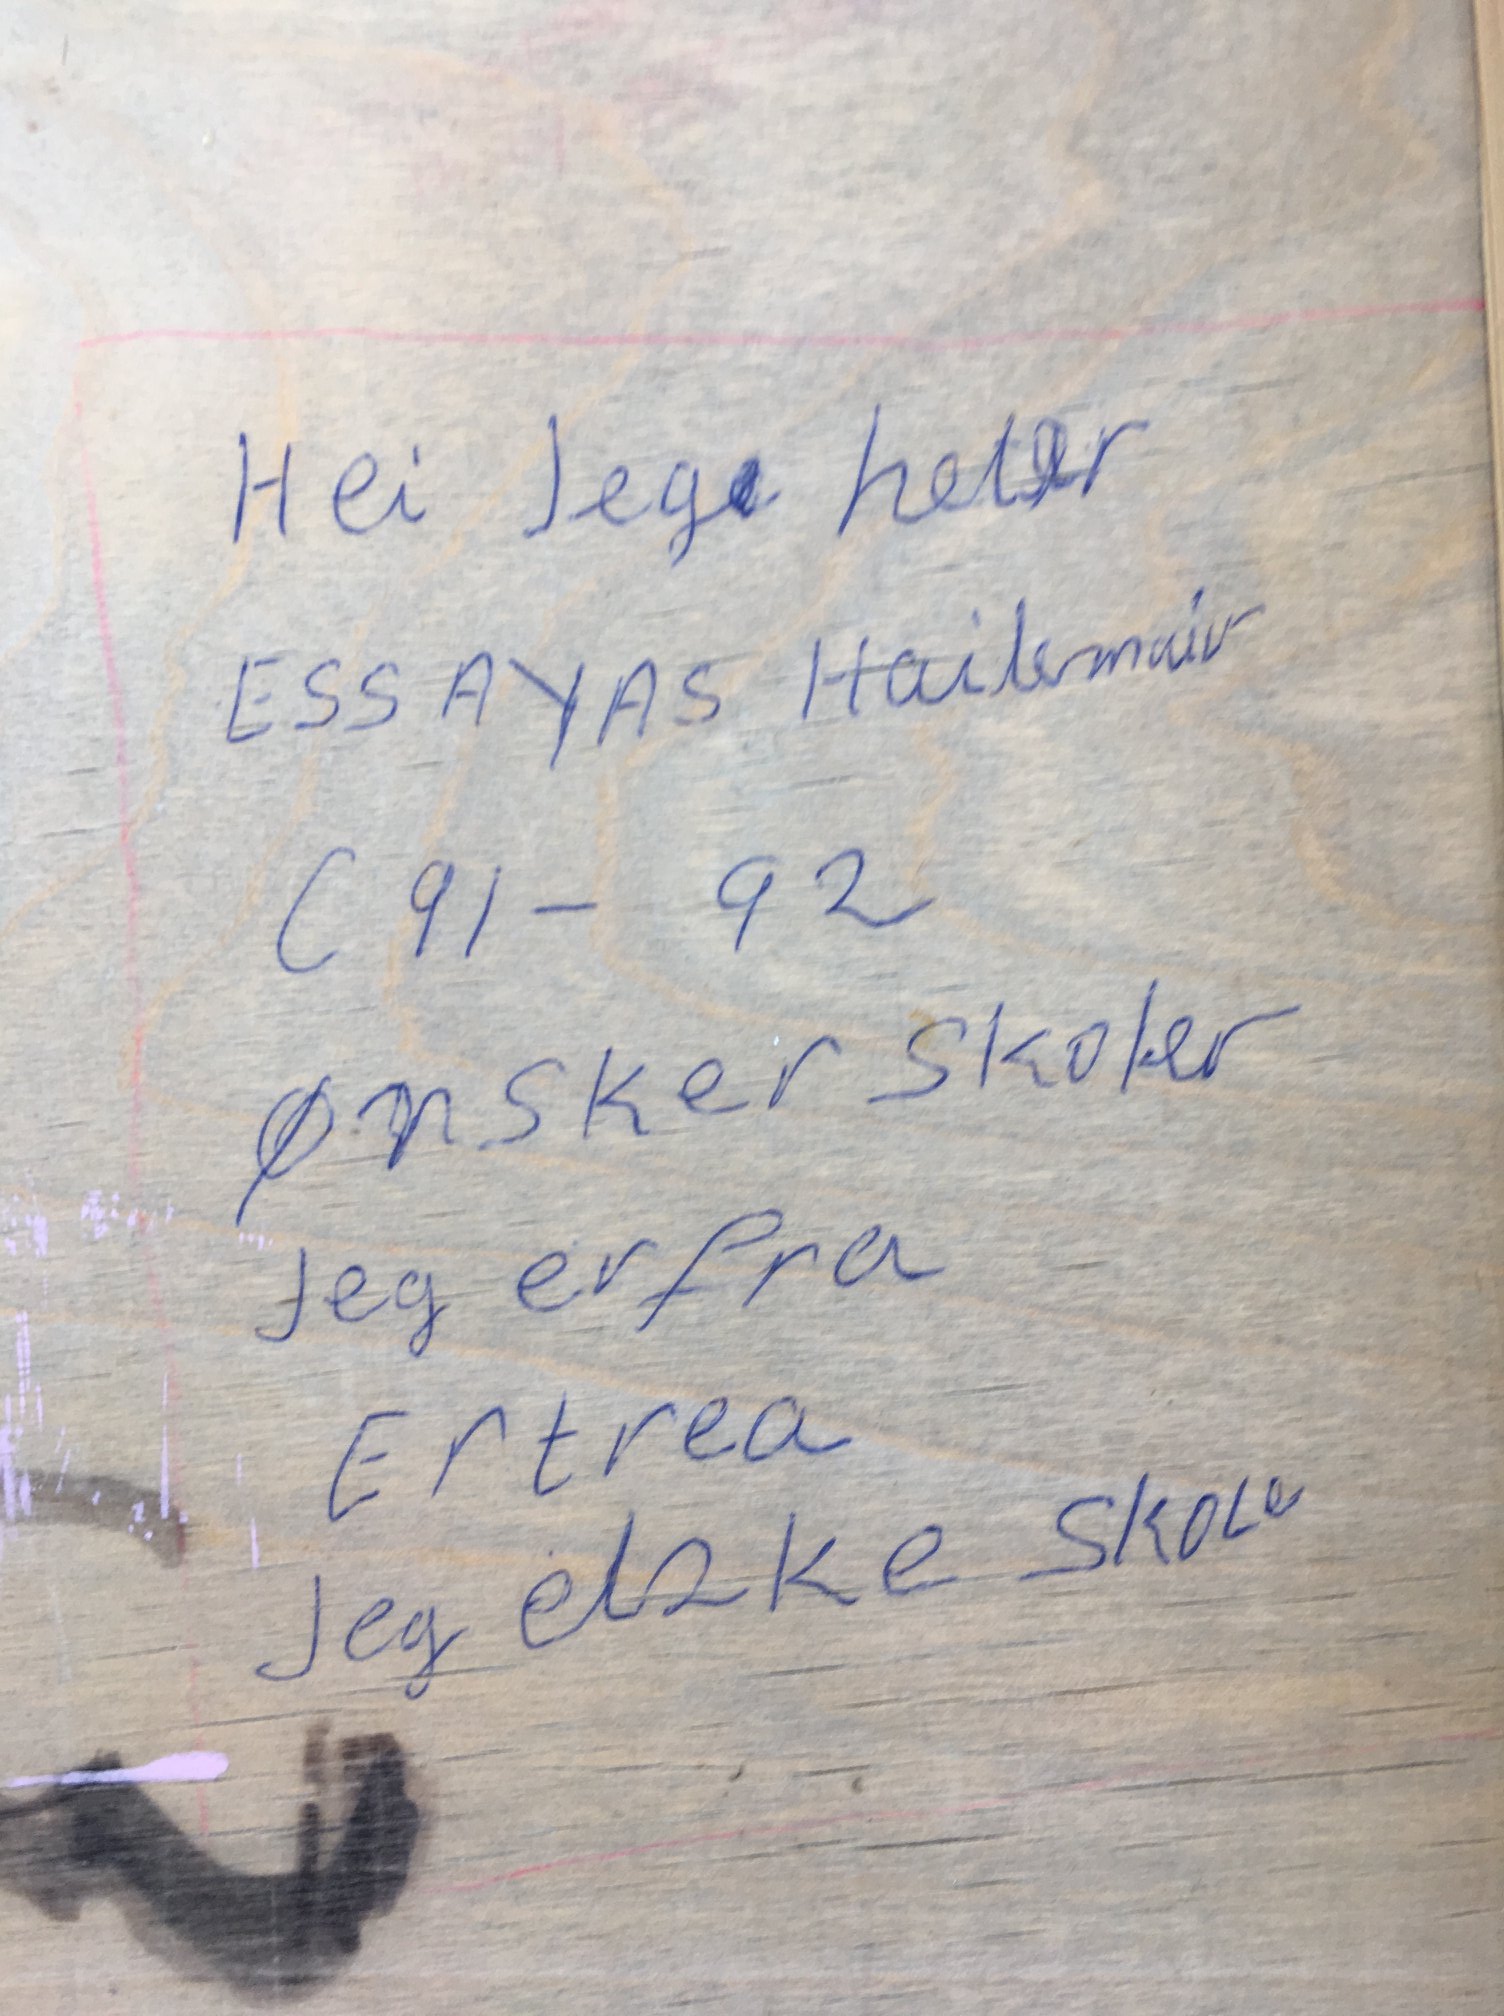 Hei Jeg heter
ESSAYAS Hailemair
C 91 - 92
Ønsker skoler
Jeg er fra
Ertrea
Jeg elske skole